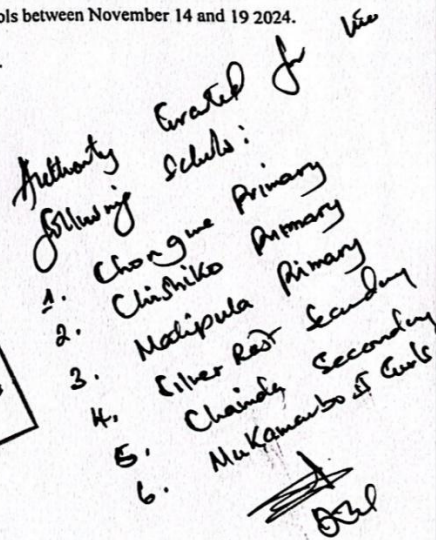 ols between November 14 and 19 2024.
Authority Granted for the
following Schools:
1. Chongwe Primary
2. Chishiko Primary
3. Matipula Primary
4. Silver Rest Secondary
5. Chainda Secondary
6. Mukamambo II Girls